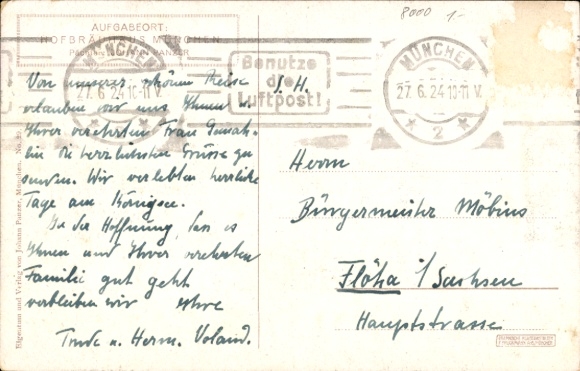 AUFGABEORT:
HOFBRÄUHAUS MÜNCHEN
PANZER
8000 1.-
MÜNCHEN
27.6.24.10-11 V.
Benutze
die
Luftpost!
MÜNCHEN
27.6.24.10-11 V.
* 2 *
Von unserer schönen Reise
erlauben wir uns Ihnen u.
Ihrer verehrten Frau Gemah-
lin die herzlichsten Grüsse zu
senden. Wir verlebten herrliche
Tage am Königsee.
In der Hoffnung, dass es
Ihnen und Ihrer verehrten
Familie gut geht
verbleiben wir Ihre
Trude u. Herm. Voland.
S. H.
Herrn
Bürgermeister Möbius
Flöha i/Sachsen
Hauptstrasse
Eigentum und Verlag von Johann Panzer, München.